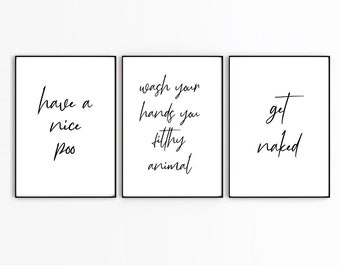 have a
nice
poo
wash your
hands you
filthy
animal
get
naked